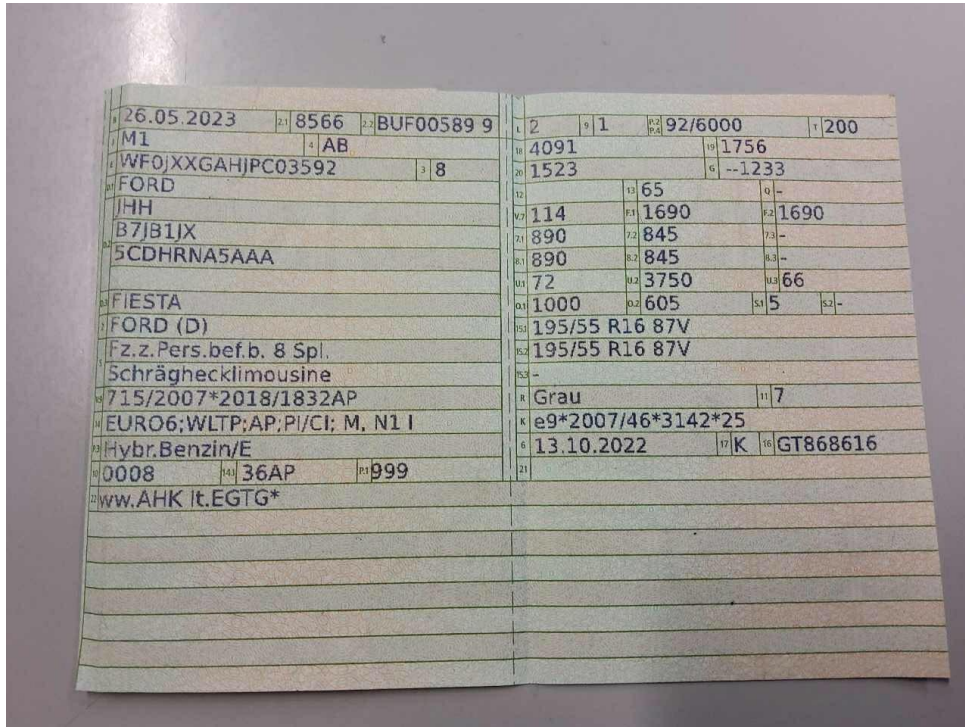 B 26.05.2023 2.1 8566 2.2 BUF00589 9
J M1 4 AB
E WF0JXXGAHJPC03592 3 8
D.1 FORD
D.2 JHH
B7JB1JX
5CDHRNA5AAA
D.3 FIESTA
2 FORD (D)
5 Fz.z.Pers.bef.b. 8 Spl.
Schräghecklimousine
V.9 715/2007*2018/1832AP
14 EURO6;WLTP;AP;PI/CI; M, N1 I
P.3 Hybr.Benzin/E
10 0008 14.1 36AP P.1 999
22 ww.AHK lt.EGTG*
L 2 9 1 P.2 P.4 92/6000 T 200
18 4091 19 1756
20 1523 G --1233
12 13 65 Q -
V.7 114 F.1 1690 F.2 1690
7.1 890 7.2 845 7.3 -
8.1 890 8.2 845 8.3 -
U.1 72 U.2 3750 U.3 66
O.1 1000 O.2 605 S.1 5 S.2 -
15.1 195/55 R16 87V
15.2 195/55 R16 87V
15.3 -
R Grau 11 7
K e9*2007/46*3142*25
6 13.10.2022 17 K 16 GT868616
21